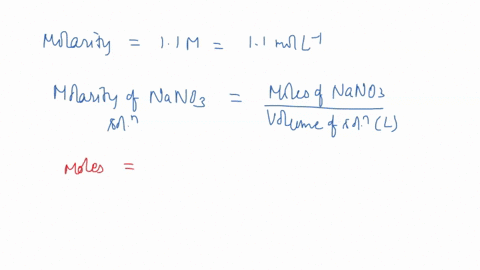 Molarity = 1.1 M = 1.1 mol L⁻¹
Molarity of NaNO₃ solⁿ = Moles of NaNO₃ / Volume of solⁿ (L)
Moles =